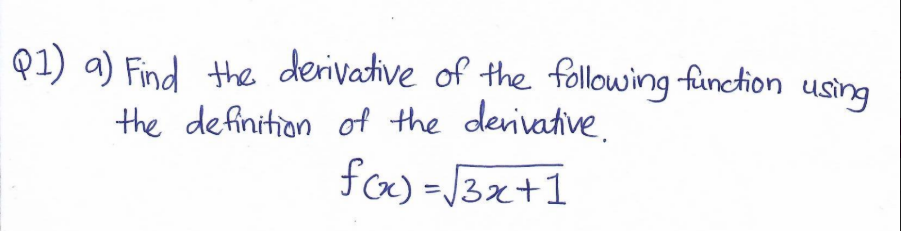 Q1) a) Find the derivative of the following function using
the definition of the derivative.
f(x) = √3x+1